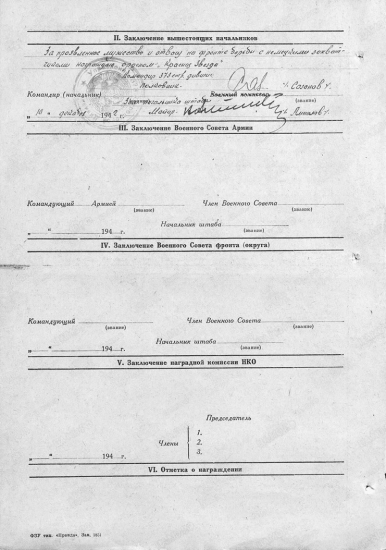 II. Заключение вышестоящих начальников
За проявленное мужество и отвагу на фронте борьбы с немецкими захват-
орденом "Красная Звезда"
Командир 373 стр. дивизии
Полковник /Сазонов/.
Командир (начальник) Военный комиссар
начальника штаба
„ 10 " декабря 1942 г. Майор
III. Заключение Военного Совета Армии
Командующий Армией Член Военного Совета
(звание) (звание)
Начальник штаба
„ " 194 г. (звание)
IV. Заключение Военного Совета фронта (округа)
Командующий Член Военного Совета
(звание) (звание)
Начальник штаба
„ " 194 г. (звание)
V. Заключение наградной комиссии НКО
Председатель
1.
Члены 2.
3.
„ " 194 г.
VI. Отметка о награждении